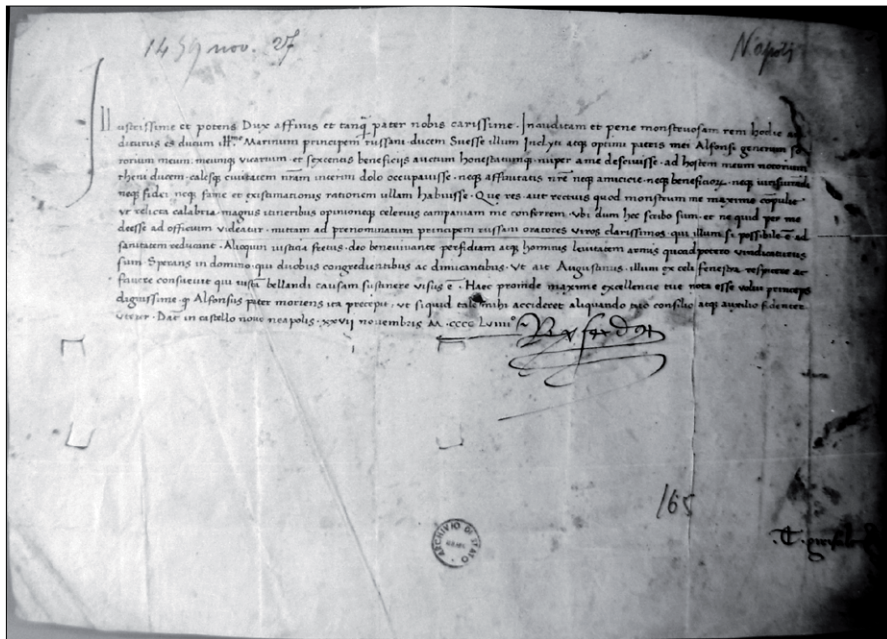 1459 nov. 27
Napoli
Illustrissime et potens Dux affinis et tanq̃ pater nobis carissime · Inauditam et pene monstruosam rem hodie
diturus es ducum Ill.me Marinum principem russani ducem Suesse illum Inclyti atq; optimi patris mei Alfonsi generum
rorium meum · meumq; vicarium · et sexcentis beneficijs auctum honestatumq; nuper a me descivisse · ad hostem meum notorium
Iheni ducem · calesq; civitatem nr̃am interim dolo occupavisse · neq; affinitatis nr̃e neq; amicicie · neq; beneficiorȝ · neq;
neq; fidei neq; fame et existimationis rationem ullam habuisse · Que res · aut rectius quod monstrum me maxime
ut relicta calabria · magnis itineribus opinioneq; celerius campaniam me conferrem · ubi dum hec scribo sum · et ne quid per me
deesse ad officium videatur · mittam ad prenominatum principem russani oratores viros clarissimos · qui illum si possibile ē ad
sanitatem reducant · Alioquin iusticia fretus · deo benevimante perfidiam atq; hominis levitatem armis quoad potero vindicaturus
sum · Sperans in domino · qui duobus congredientibus ac dimicantibus · Ut ait Augustinus · illum ex celi fenestra respicere ac
favere consuevit qui iustā bellandi causam sustinere visus ē · Haec proinde maxime excellencie tue nota esse volui princeps
dignissime · q̃ Alfonsus pater moriens ita precepit · ut siquid tale mihi accideret aliquando tuo consilio atq; auxilio fidenter
uterer · Dat̃ in castello novo neapolis · xxvii novembris M · cccc Lviiiiº
Rex ferdus
165
ARCHIVIO DI STATO